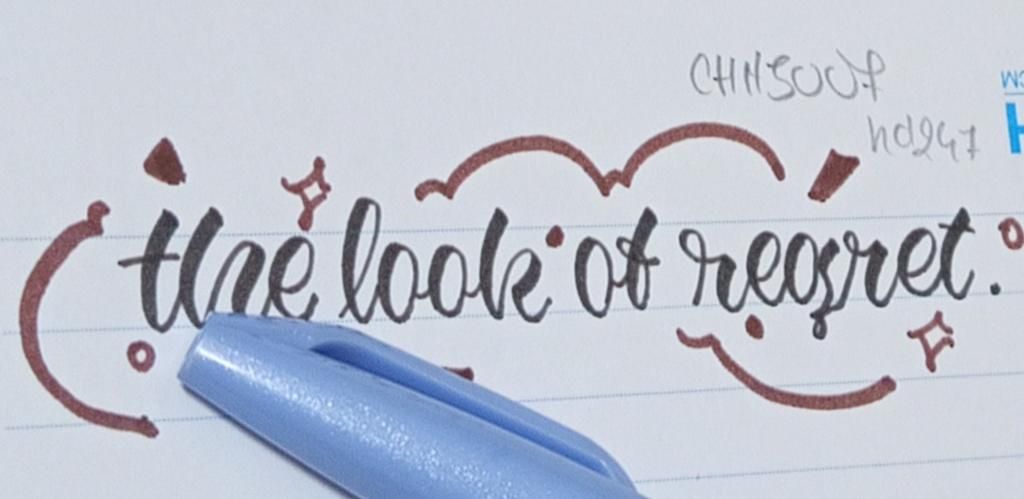 CHN5007
hd247
the look of regret.